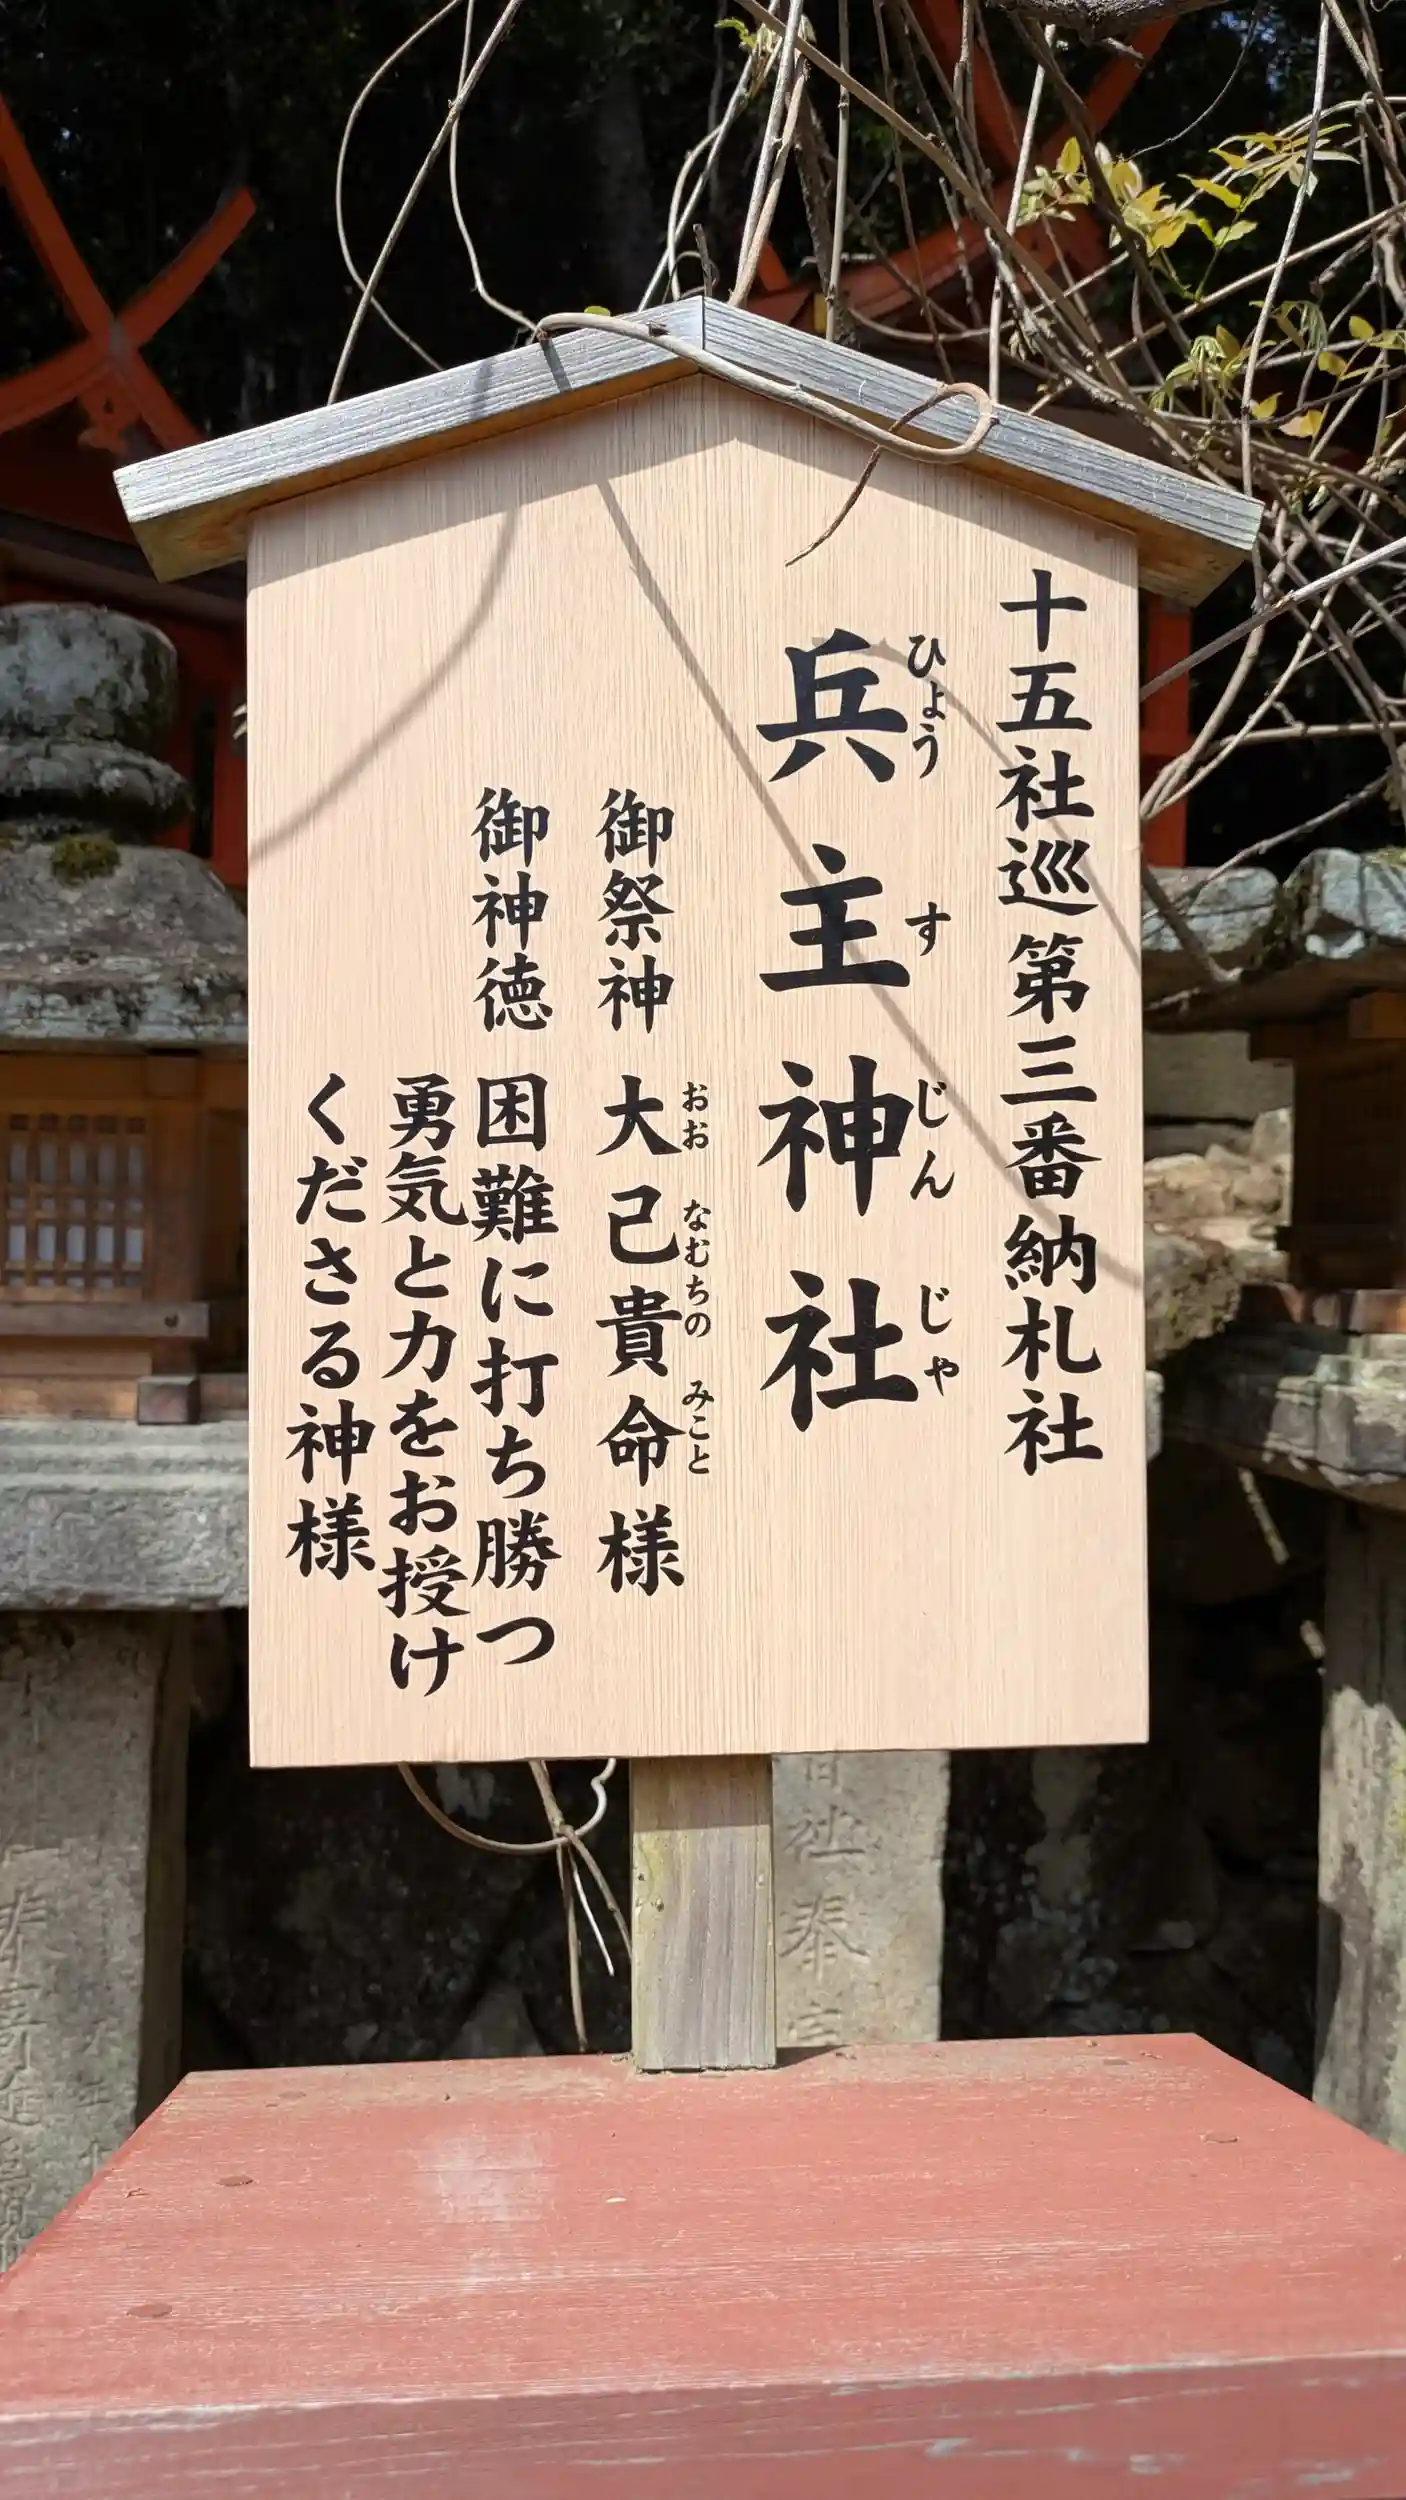 十五社巡 第三番納札社
兵主神社
ひょうすじんじゃ
御祭神 大己貴命様
おおなむちのみこと
御神徳 困難に打ち勝つ
勇気と力をお授け
くださる神様
社奉